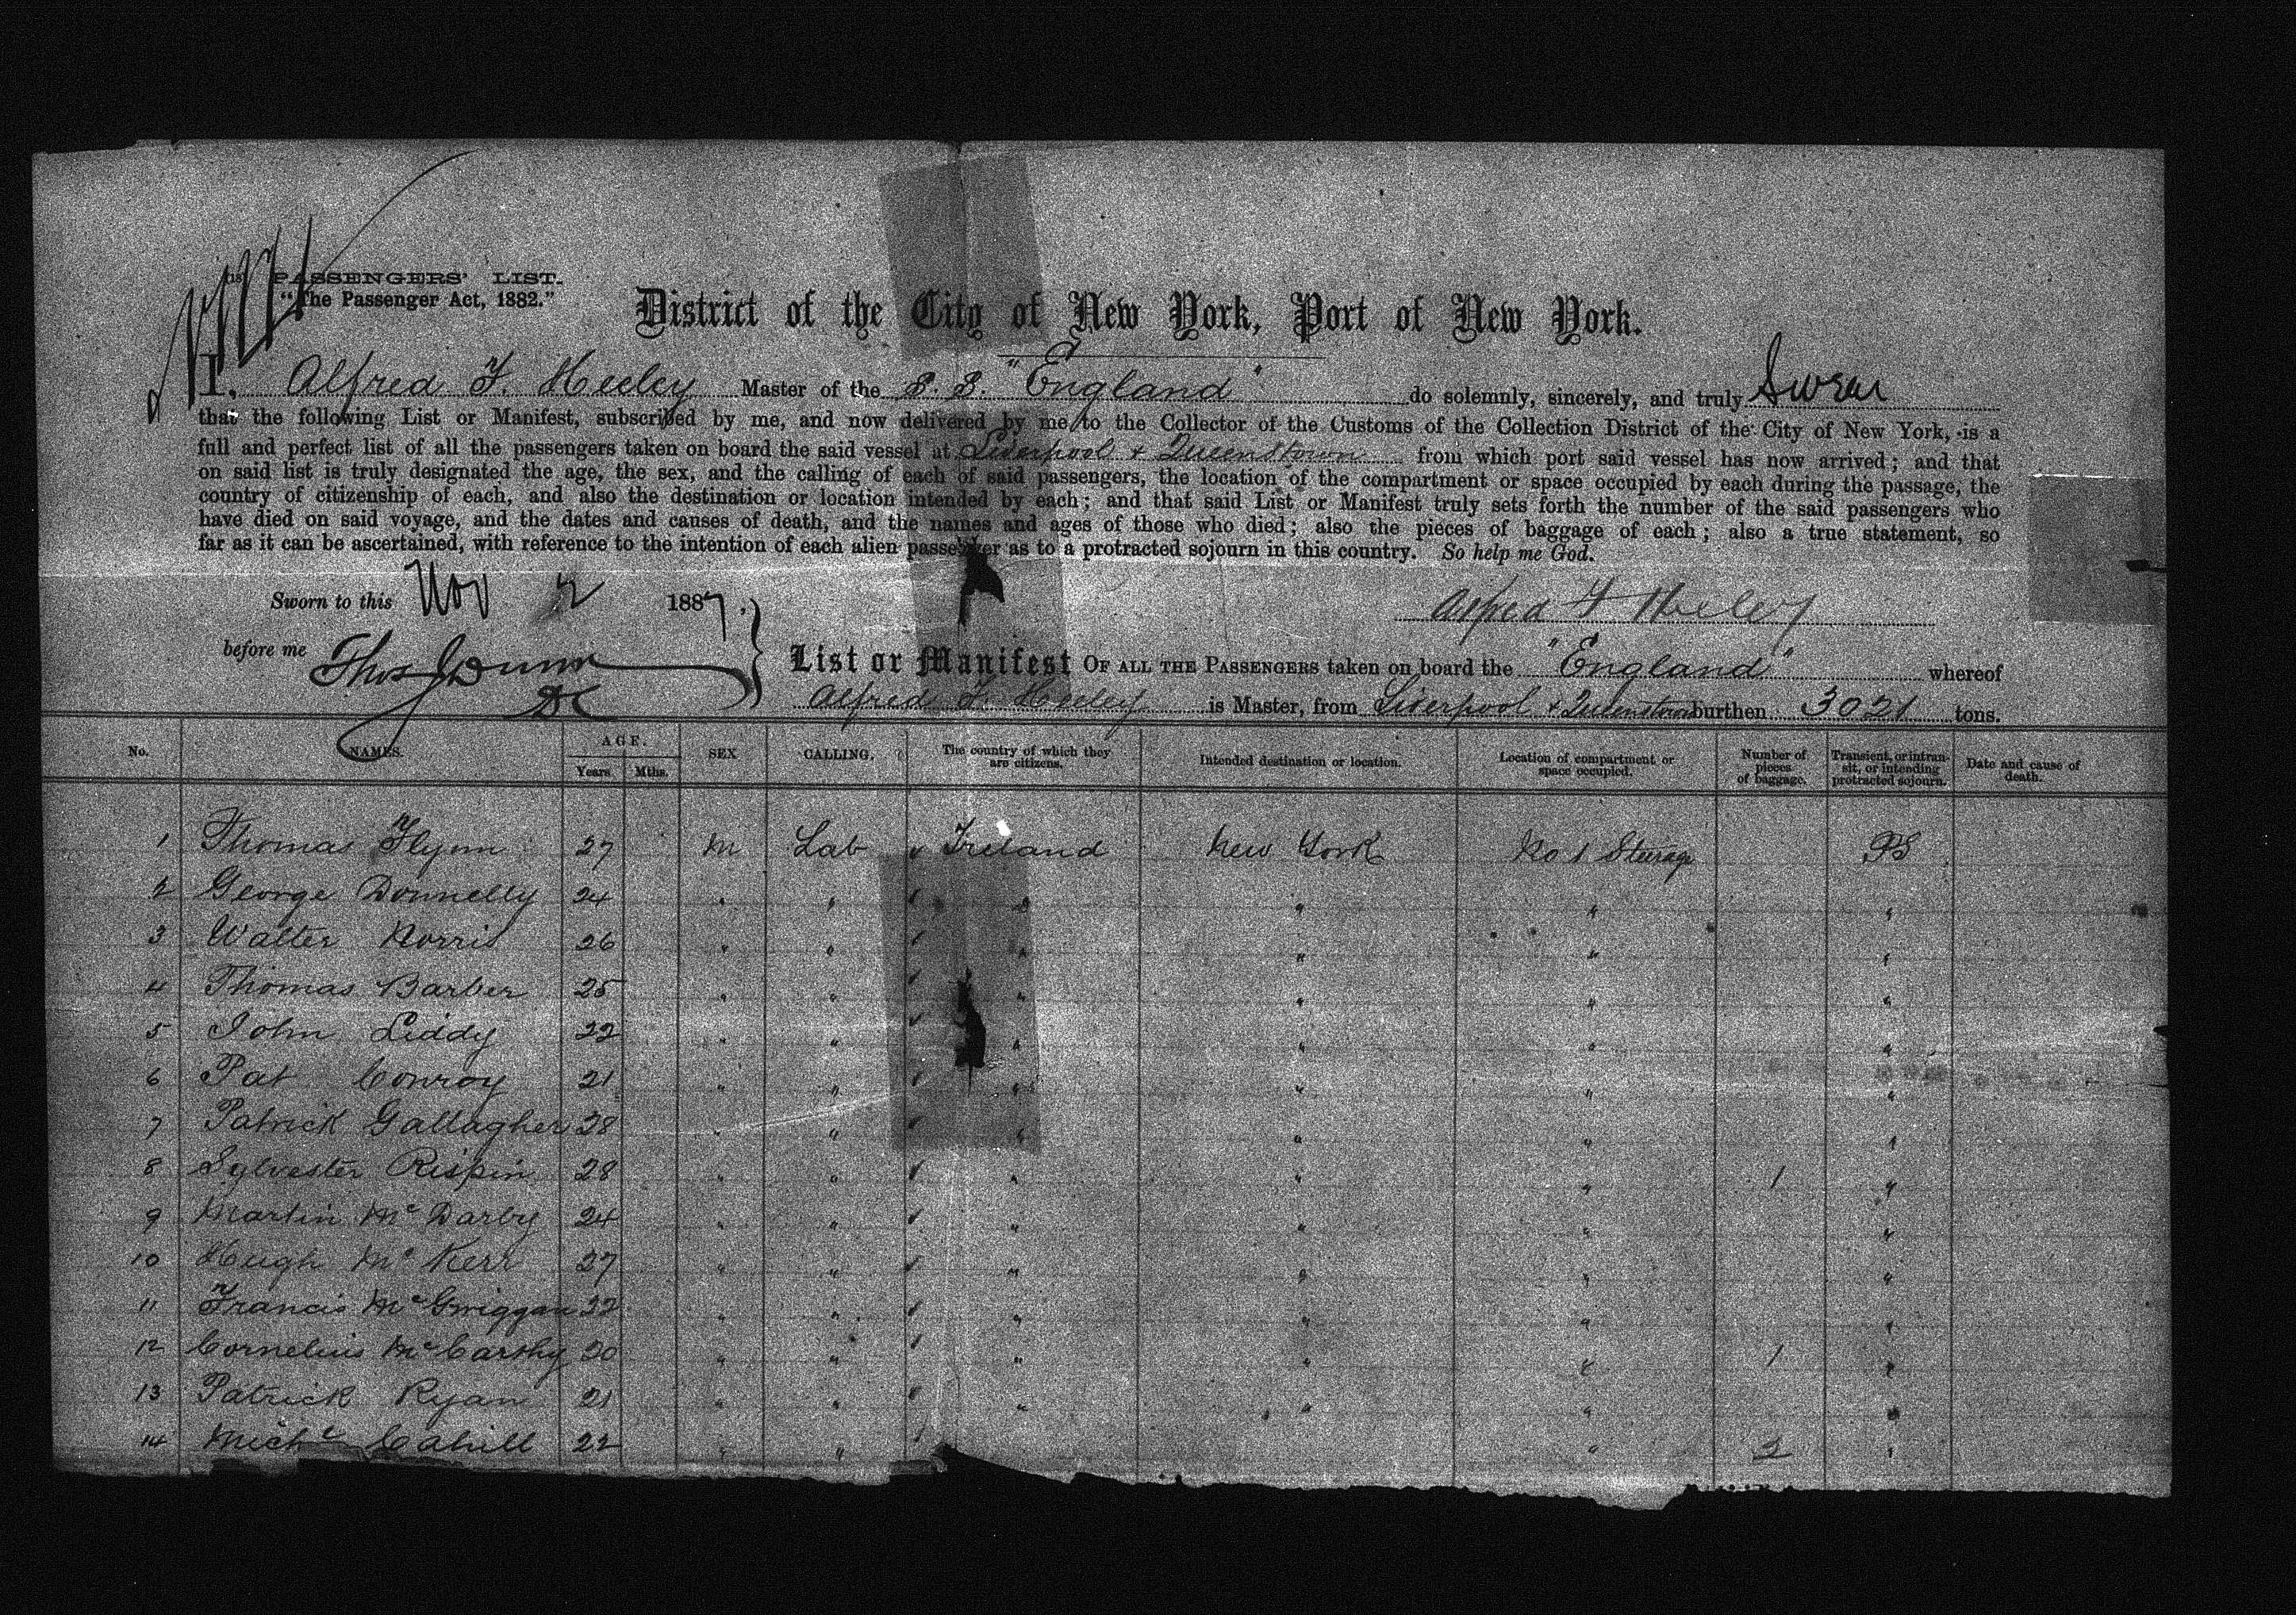 PASSENGERS' LIST.
"The Passenger Act, 1882."
District of the City of New York, Port of New York.
I, Alfred F. Heeley Master of the S. S. "England" do solemnly, sincerely, and truly Swear
that the following List or Manifest, subscribed by me, and now delivered by me to the Collector of the Customs of the Collection District of the City of New York, is a
full and perfect list of all the passengers taken on board the said vessel at Liverpool & Queenstown from which port said vessel has now arrived; and that
on said list is truly designated the age, the sex, and the calling of each of said passengers, the location of the compartment or space occupied by each during the passage, the
country of citizenship of each, and also the destination or location intended by each; and that said List or Manifest truly sets forth the number of the said passengers who
have died on said voyage, and the dates and causes of death, and the names and ages of those who died; also the pieces of baggage of each; also a true statement, so
far as it can be ascertained, with reference to the intention of each alien passenger as to a protracted sojourn in this country. So help me God.
Sworn to this Nov 2 1887,
Alfred F Heeley
before me Thos J Dunn
DC
List or Manifest OF ALL THE PASSENGERS taken on board the "England" whereof
Alfred F. Heeley is Master, from Liverpool & Queenstown burthen 3021 tons.
No. NAMES. AGE. Years. Mths. SEX CALLING. The country of which they are citizens. Intended destination or location. Location of compartment or space occupied. Number of pieces of baggage. Transient, or intransit, or intending protracted sojourn. Date and cause of death.
1 Thomas Flynn 27 M Lab Ireland New York No 1 Steerage PS
2 George Donnelly 24 " " " " " "
3 Walter Norris 26 " " " " " "
4 Thomas Barber 25 " " " " " "
5 John Liddy 22 " " " " " "
6 Pat Conroy 21 " " " " " "
7 Patrick Gallagher 28 " " " " " "
8 Sylvester Rispin 28 " " " " " 1 "
9 Martin McDarby 24 " " " " " "
10 Hugh McKerr 27 " " " " " "
11 Francis McGwiggan 22 " " " " " "
12 Cornelius McCarthy 20 " " " " " 1 "
13 Patrick Ryan 21 " " " " " "
14 Michl Cahill 22 " " " 2 "